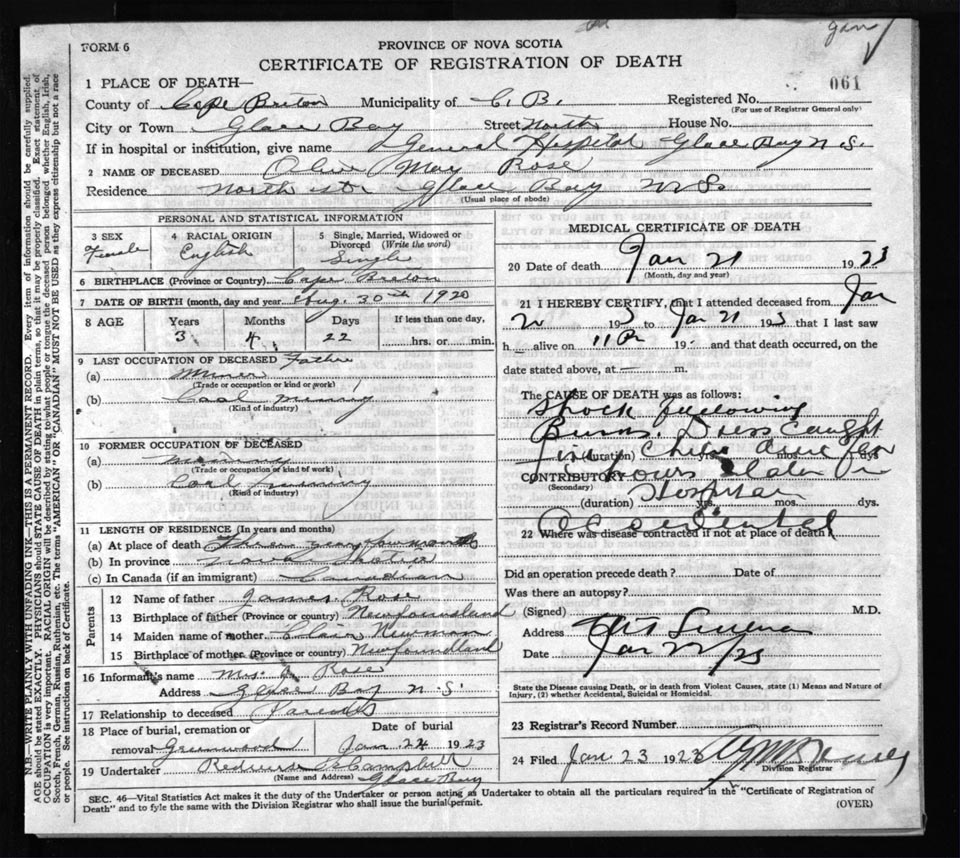 gan
FORM 6
PROVINCE OF NOVA SCOTIA
CERTIFICATE OF REGISTRATION OF DEATH
061
1 PLACE OF DEATH—
County of Cape Breton Municipality of C. B. Registered No.
(For use of Registrar General only)
City or Town Glace Bay Street North House No.
If in hospital or institution, give name General Hospital Glace Bay N. S.
2 NAME OF DECEASED May Rose
Residence North str Glace Bay N. S.
(Usual place of abode)
PERSONAL AND STATISTICAL INFORMATION
3 SEX Female
4 RACIAL ORIGIN English
5 Single, Married, Widowed or Divorced (Write the word) Single
6 BIRTHPLACE (Province or Country) Cape Breton
7 DATE OF BIRTH (month, day and year Aug. 30th 1920
8 AGE Years Months Days If less than one day,
3 4 22 hrs. or min.
9 LAST OCCUPATION OF DECEASED Father
(a) Miner
(Trade or occupation or kind or work)
(b) Coal mining
(Kind of industry)
10 FORMER OCCUPATION OF DECEASED
(a)
(Trade or occupation or kind of work)
(b) Coal mining
(Kind of industry)
11 LENGTH OF RESIDENCE (In years and months)
(a) At place of death Three years four months
(b) In province Nova Scotia
(c) In Canada (if an immigrant) Canadian
Parents
12 Name of father James Rose
13 Birthplace of father (Province or country) Newfoundland
14 Maiden name of mother Newman
15 Birthplace of mother (Province or country) Newfoundland
16 Informant's name Mrs. J. Rose
Address Glace Bay N. S.
17 Relationship to deceased Parents
18 Place of burial, cremation or removal Greenwood
Date of burial Jan. 24 1923
19 Undertaker Campbell
(Name and Address) Glace Bay
MEDICAL CERTIFICATE OF DEATH
20 Date of death Jan 21 1923
(Month, day and year)
21 I HEREBY CERTIFY, that I attended deceased from Jan
193 to Jan 21 193 that I last saw
h alive on 11 P 19 and that death occurred, on the
date stated above, at — m.
The CAUSE OF DEATH was as follows:
Shock following
Burns. Dress caught
fire
(duration) yrs. mos. dys.
hours later in
CONTRIBUTORY
(Secondary)
Hospital
(duration) yrs. mos. dys.
Accidental
22 Where was disease contracted if not at place of death?
Did an operation precede death? Date of
Was there an autopsy?
(Signed) M.D.
Address
Date Jan 22/23
State the Disease causing Death, or in death from Violent Causes, state (1) Means and Nature of Injury, (2) whether Accidental, Suicidal or Homicidal.
23 Registrar's Record Number
24 Filed Jan 23 1923
Division Registrar
SEC. 46—Vital Statistics Act makes it the duty of the Undertaker or person acting as Undertaker to obtain all the particulars required in the "Certificate of Registration of
Death" and to fyle the same with the Division Registrar who shall issue the burial permit.
(OVER)
N.B.—WRITE PLAINLY WITH UNFADING INK—THIS IS A PERMANENT RECORD. Every item of information should be carefully supplied.
AGE should be stated EXACTLY. PHYSICIANS should STATE CAUSE OF DEATH in plain terms, so that it may be properly classified. Exact statement of
OCCUPATION is very important. RACIAL ORIGIN will be described by stating to what people or tongue the deceased person belonged whether English, Irish,
Scotch, French, German, Russian, Ruthenian, etc. The terms "AMERICAN" OR "CANADIAN" MUST NOT BE USED as they express citizenship but not a race
or people. See instructions on back of Certificate.